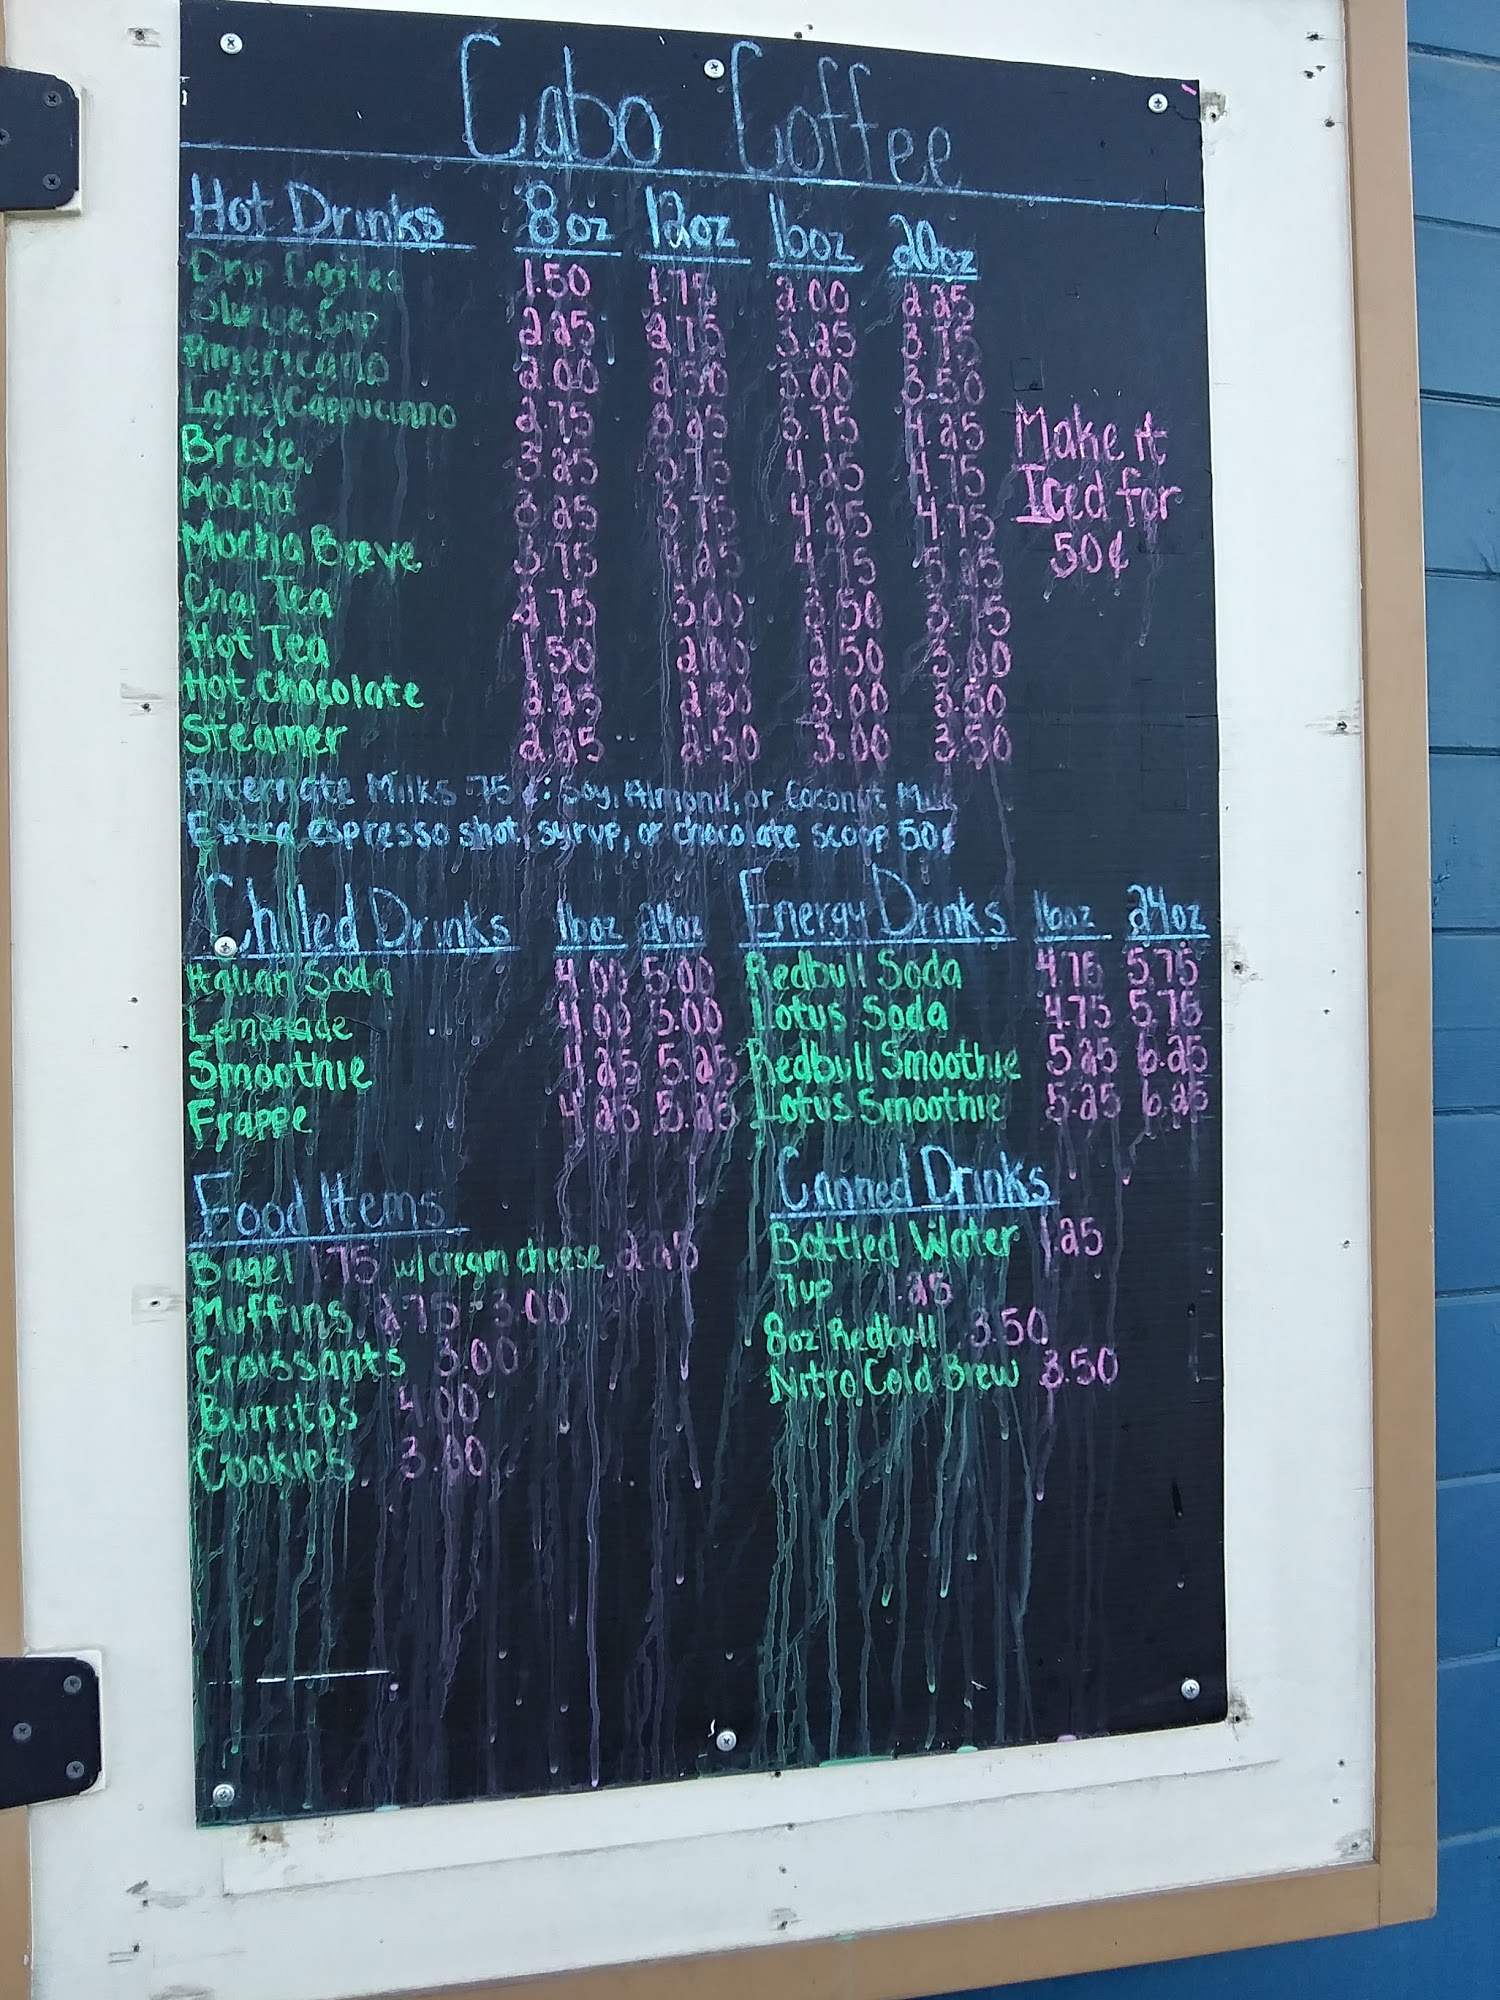 Cabo Coffee
Hot Drinks 8oz 12oz 16oz 20oz
Drip Coffee 1.50 1.75 2.00 2.25
Sludge Cup 2.25 2.75 3.25 3.75
Americano 2.00 2.50 3.00 3.50
Latte/Cappucinno 2.75 3.25 3.75 4.25
Breve 3.25 3.75 4.25 4.75
Mocha 3.25 3.75 4.25 4.75
Mocha Breve 3.75 4.25 4.75 5.25
Chai Tea 2.75 3.00 3.50 3.75
Hot Tea 1.50 2.00 2.50 3.00
Hot Chocolate 2.25 2.50 3.00 3.50
Steamer 2.25 2.50 3.00 3.50
Make it
Iced for
50¢
Alternate Milks 75¢: Soy, Almond, or Coconut Milk
Extra espresso shot, syrup, or chocolate scoop 50¢
Chilled Drinks 16oz 24oz
Italian Soda 4.00 5.00
Lemonade 4.00 5.00
Smoothie 4.25 5.25
Frappe 4.25 5.25
Energy Drinks 16oz 24oz
Redbull Soda 4.75 5.75
Lotus Soda 4.75 5.75
Redbull Smoothie 5.25 6.25
Lotus Smoothie 5.25 6.25
Food Items
Bagel 1.75 w/cream cheese 2.25
Muffins 2.75-3.00
Croissants 3.00
Burritos 4.00
Cookies 3.00
Canned Drinks
Bottled Water 1.25
7up 1.25
8oz Redbull 3.50
Nitro Cold Brew 3.50